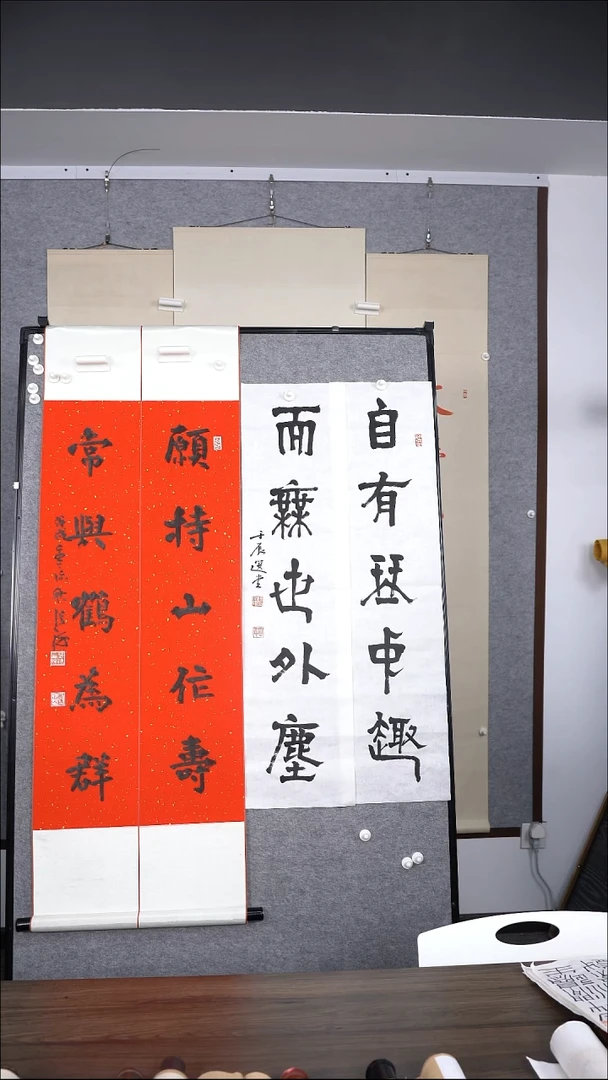 自有琹中趣
而無也外塵
壬辰選堂
願持山作壽
常與鶴為群